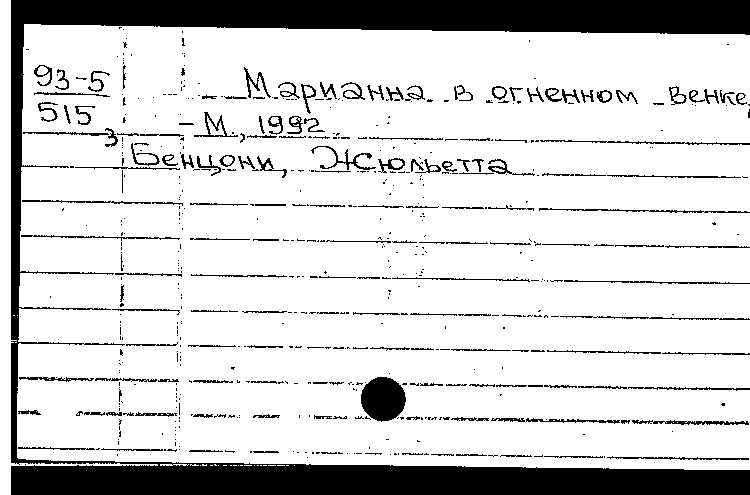 93-5
515
3
Марианна в огненном венке,
- М., 1992.
Бенцони, Жюльетта